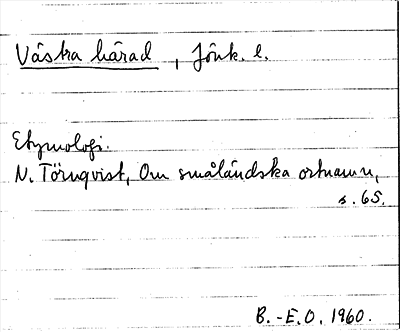 Västra härad, Jönk. l.
Etymologi.
N. Törnqvist, Om småländska ortnamn,
s. 65.
B.-E.O. 1960.